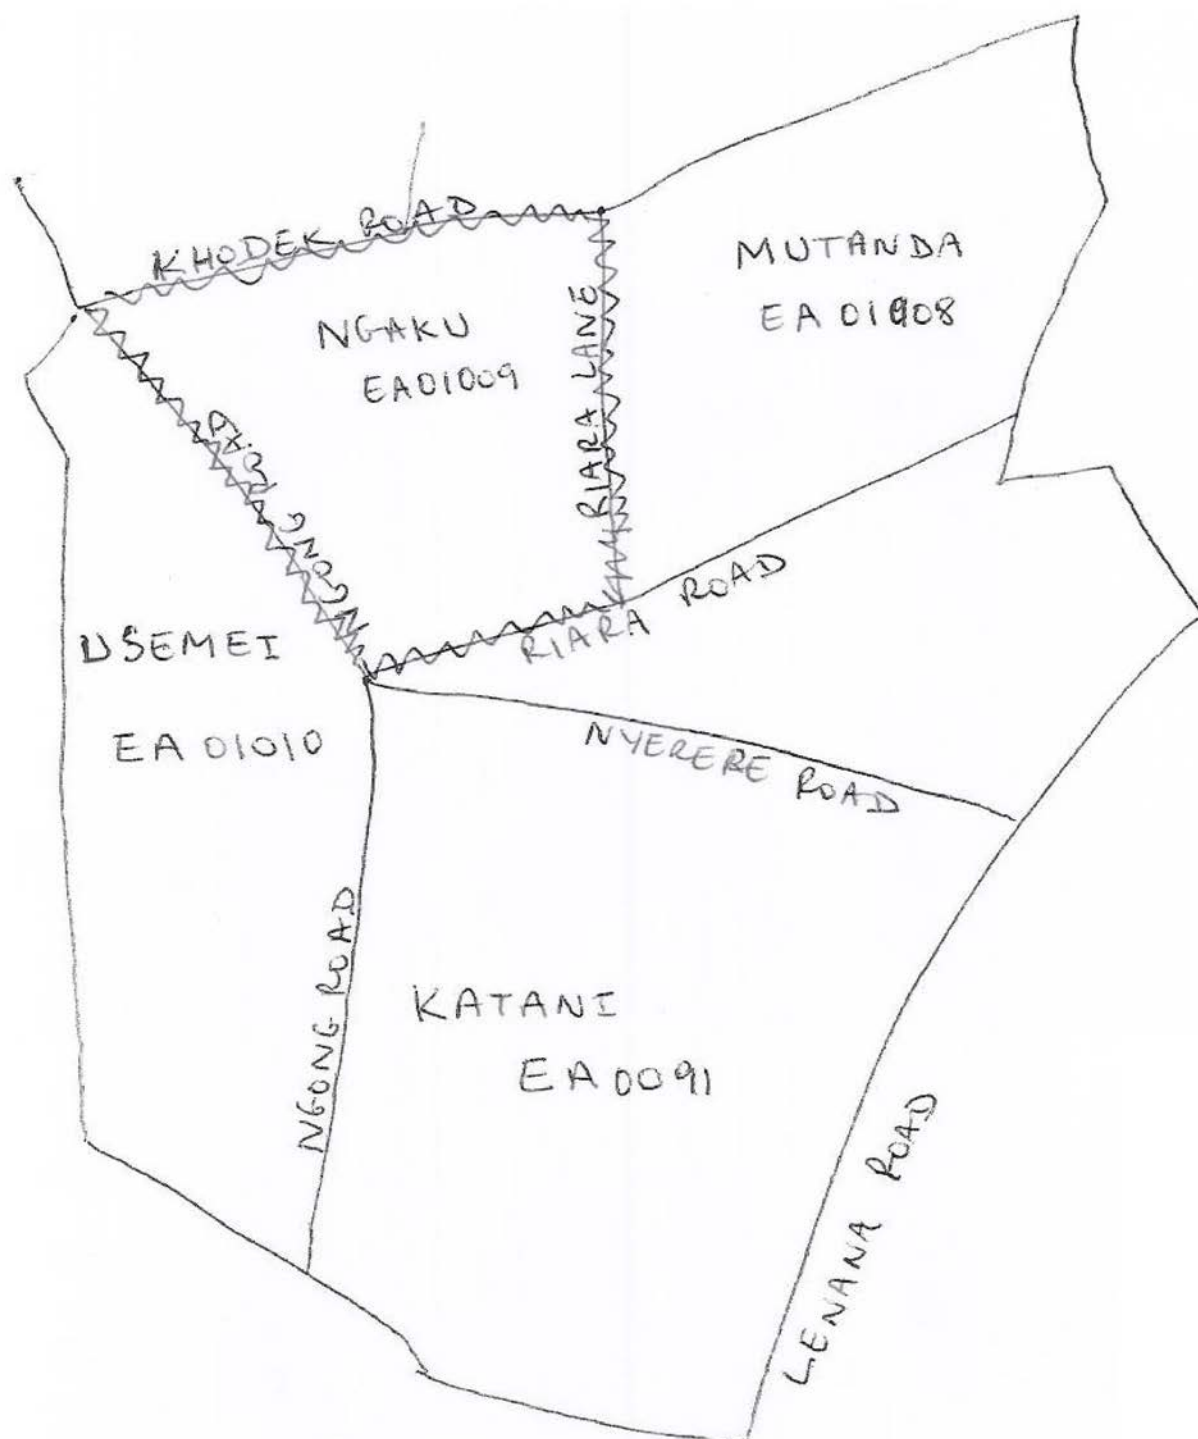 KHODEK ROAD
MUTANDA
EA 01908
NGAKU
EA01009
RIARA LANE
NGONG ROAD
RIARA ROAD
USEMEI
EA 01010
NYERERE ROAD
NGONG ROAD
KATANI
EA 0091
LENANA ROAD